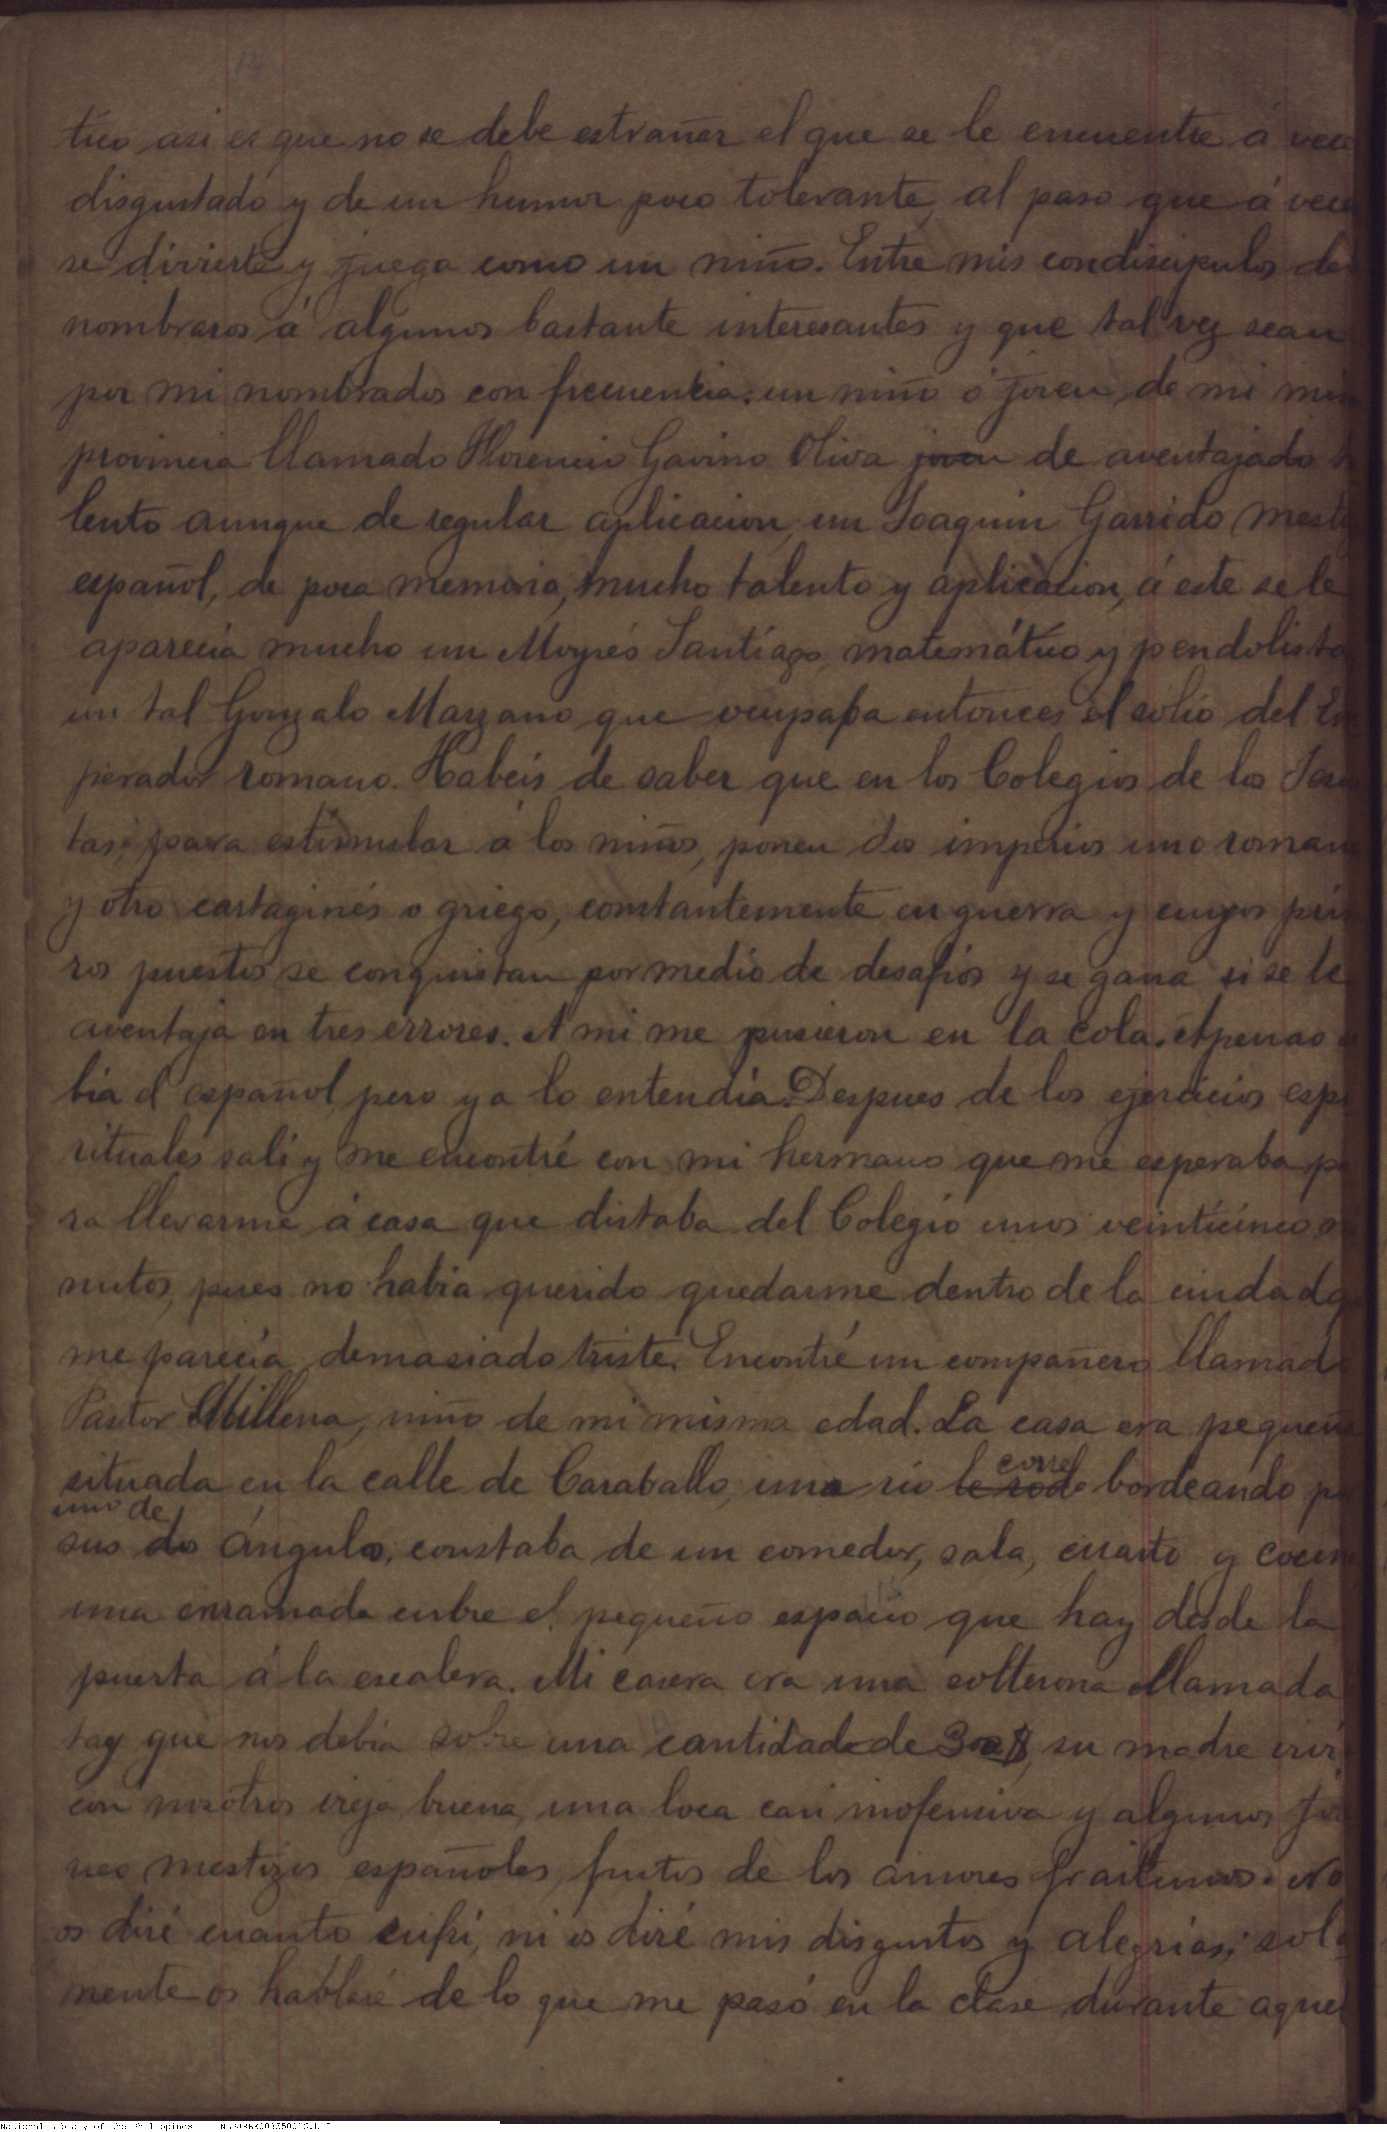 tico asi es que no se debe estrañar el que se le encuentre á vece
disgustado y de un humor poco tolerante, al paso que á vece
se divierte y juega como un niño. Entre mis condiscipulos de
nombraros á algunos bastante interesantes y que tal vez sean
por mi nombrados con frecuencia: un niño ó joven, de mi mis
provincia llamado Florencio Gavino Oliva joven de aventajado t
lento aunque de regular aplicacion, un Joaquin Garrido mesti
español, de poca memoria, mucho talento y aplicacion, á este se le
aparecia mucho un Moysés Santíago, matemático y pendolista
un tal Gonzalo Marzano que ocupaba entonces el solio del Em
perador romano. Habeis de saber que en los Colegios de los Jesu
tas, para estimular á los niños, ponen dos imperios uno roman
y otro cartaginés o griego, constantemente en guerra y cuyos prim
ros puestos se conquistan por medio de desafios y se gana si se le
aventaja en tres errores. A mi me pusieron en la cola. Apenas
bia el español, pero ya lo entendia. Despues de los ejercicios espi
rituales salí y me encontré con mi hermano que me esperaba pa
ra llevarme á casa que distaba del Colegio unos veinticinco m
nutos, pues no habia querido quedarme dentro de la ciudad q
me parecia demasiado triste. Encontré un compañero llamado
Pastor Millena, niño de mi misma edad. La casa era pequeña
situada en la calle de Caraballo, una rio le rode corre bordeando po
uno de
sus dos ángulo, constaba de un comedor, sala, cuarto y cocin
una enramada cubre el pequeño espacio que hay desde la
puerta á la escalera. Mi casera era una solterona llamada
tay que nos debia sobre una cantidad de 300 $, su madre vivi
con nosotros vieja buena, una loca casi inofensiva y algunos jov
nes mestizos españoles, frutos de los amores frailunos. No
os diré cuanto sufri, ni os diré mis disgustos y alegrías; sola
mente os hablaré de lo que me pasó en la clase durante aquel
National Library of the Philippines